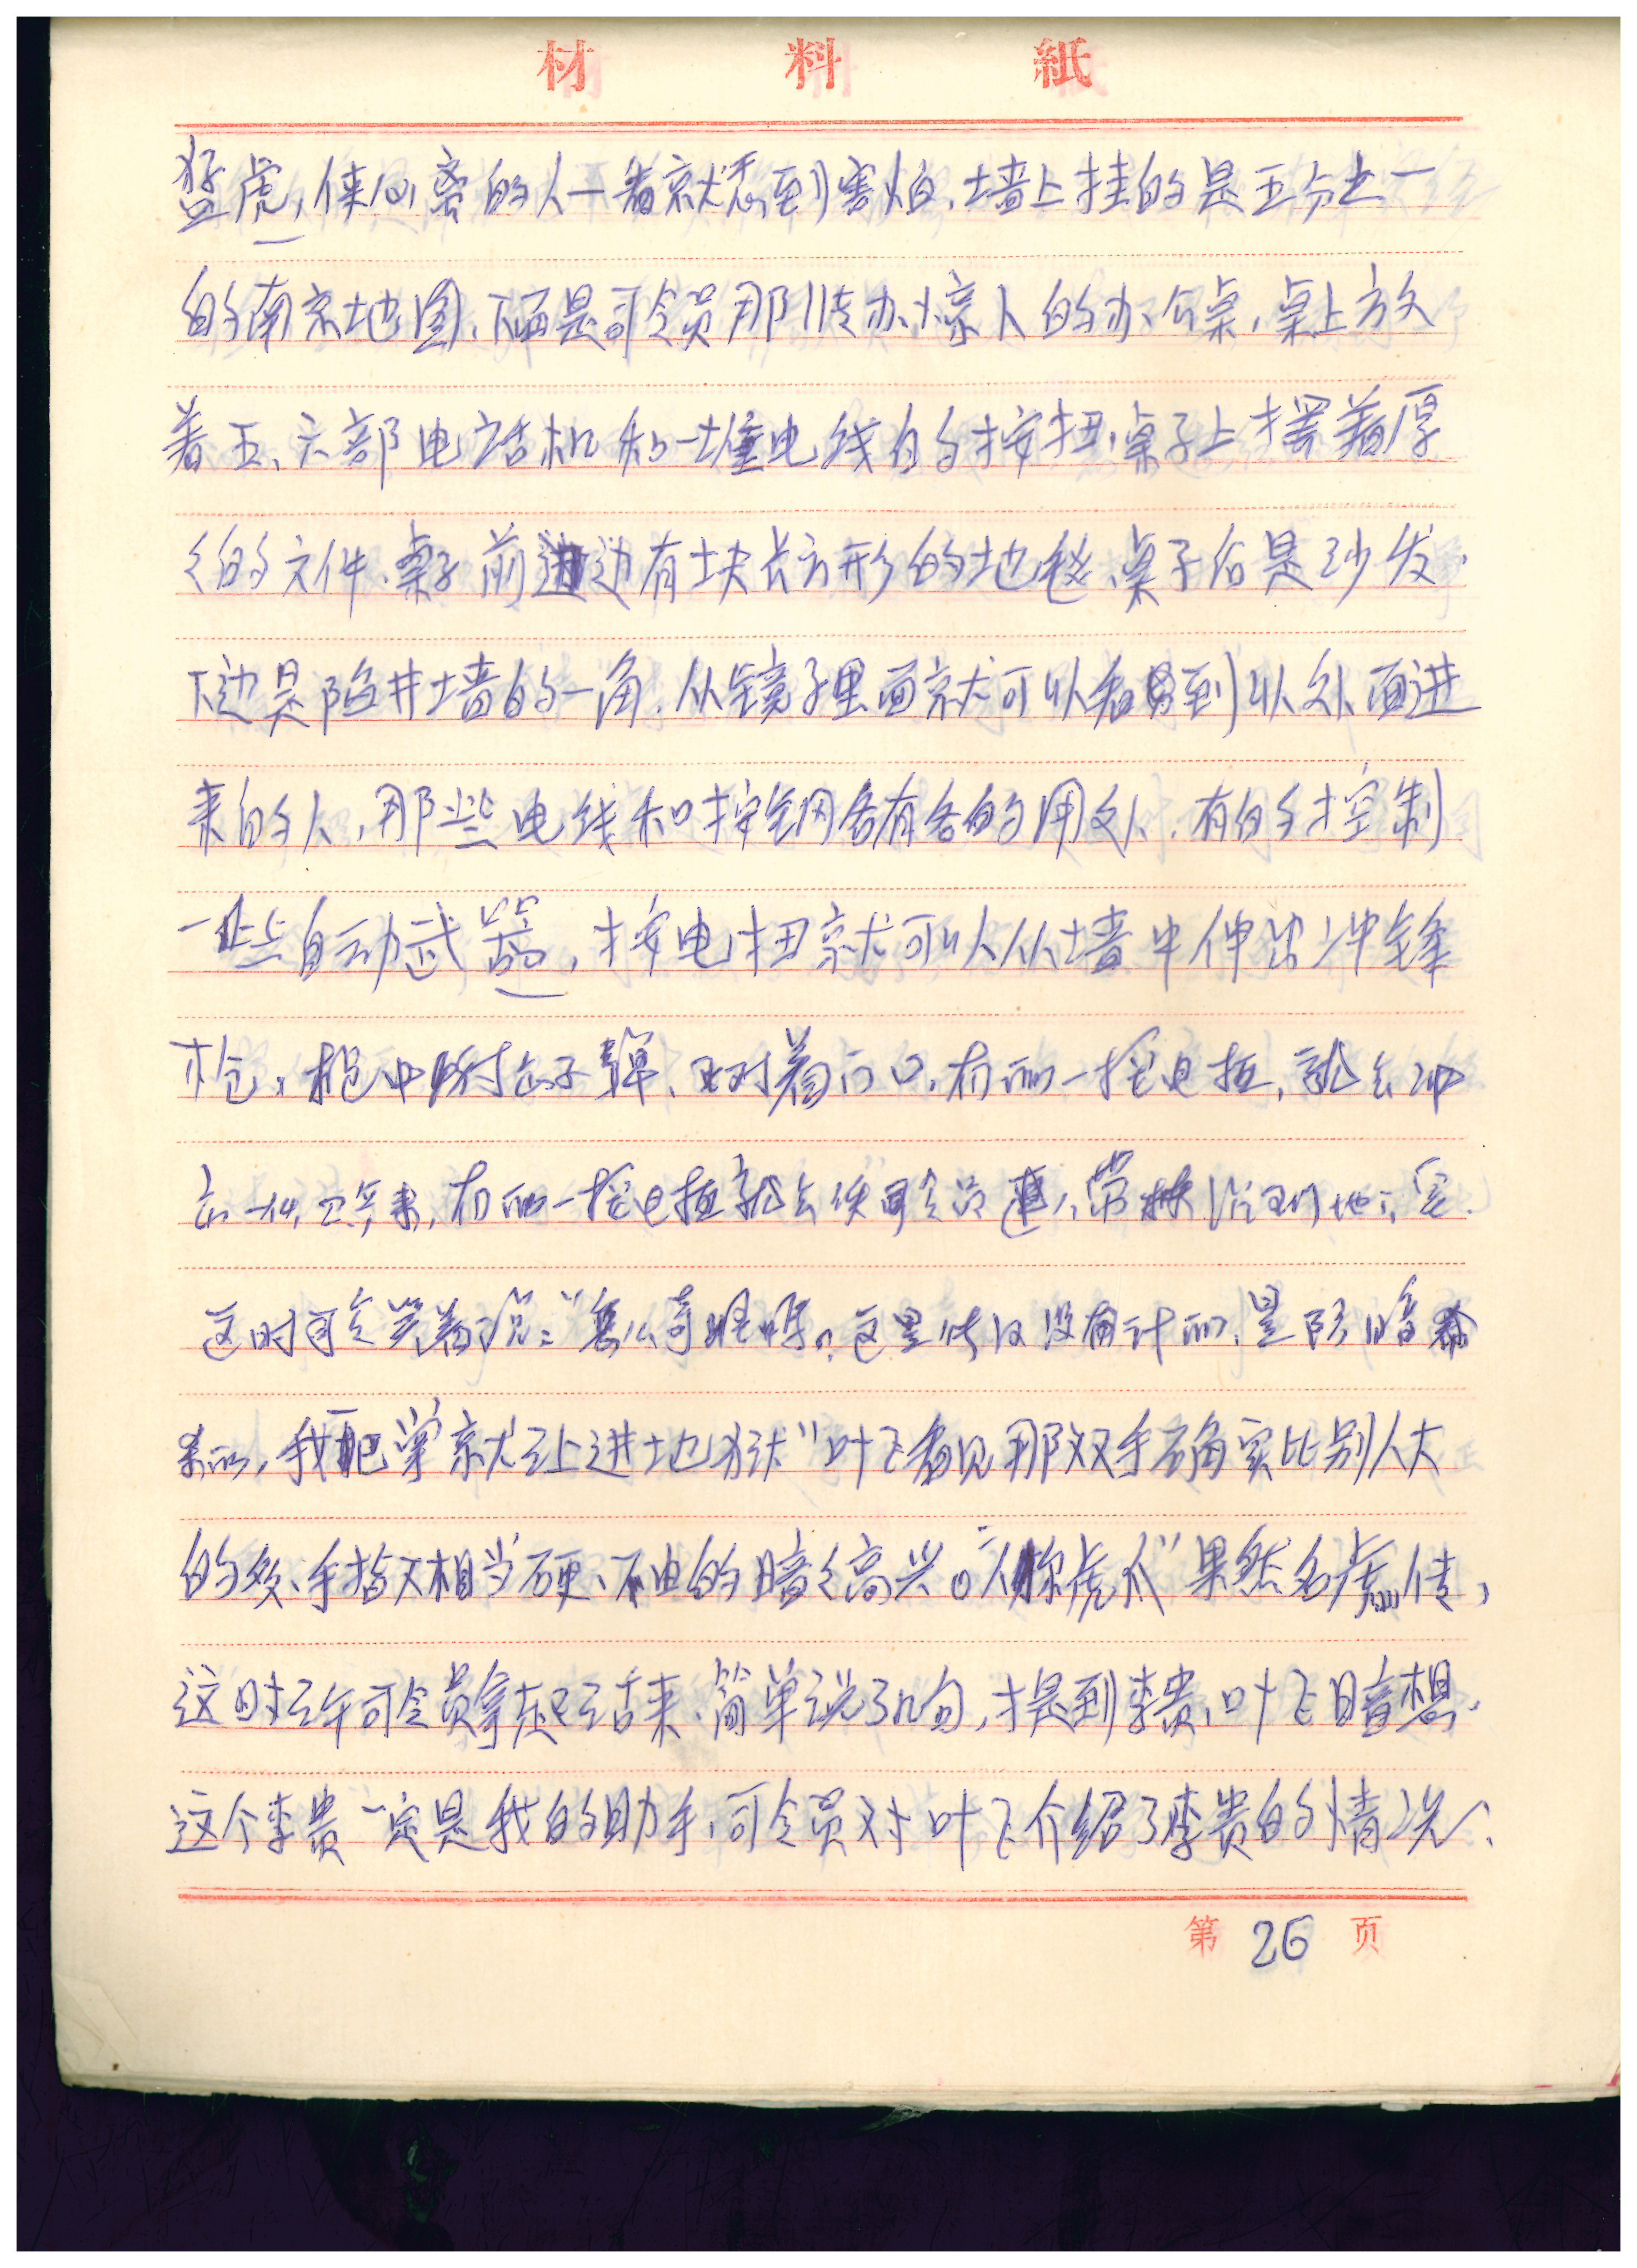 材料紙
猛虎，使心离的人一看就感到害怕、墙上挂的是五分之一
的南京地图、下面是司令员那张办惊人的办公桌，桌上放
着五、六部电话机和一堆电线的按扭，桌子上摆着厚
々的文件、桌子前边有块长方形的地毯、桌子后是沙发，
下边是陷井墙的一角，从镜子里面就可以看到从外面进
来的人，那些电线和按钮各有各的用处，有的控制
一些自动武器，按电扭就可以从墙中伸出冲锋
枪，枪中射出子弹、对着门口，有的一按电扭，就会冲
出一伙卫兵来，有的一按电扭就会使司令员连人带椅沉到地下室.
这时司令笑着说：“怎么奇怪吗。这里没有计的，是防暗杀
来的，我一把掌就让上进地狱”叶飞看见那双手确实比别人大
的多、手指又相当硬、不由的暗々高兴。“人称虎爪”果然名虚传，
这时许司令员拿起话来、简单说了几句，提到李贵，叶飞暗想，
这个李贵一定是我的助手，司令员对叶飞介绍了李贵的情况、
第 26 页